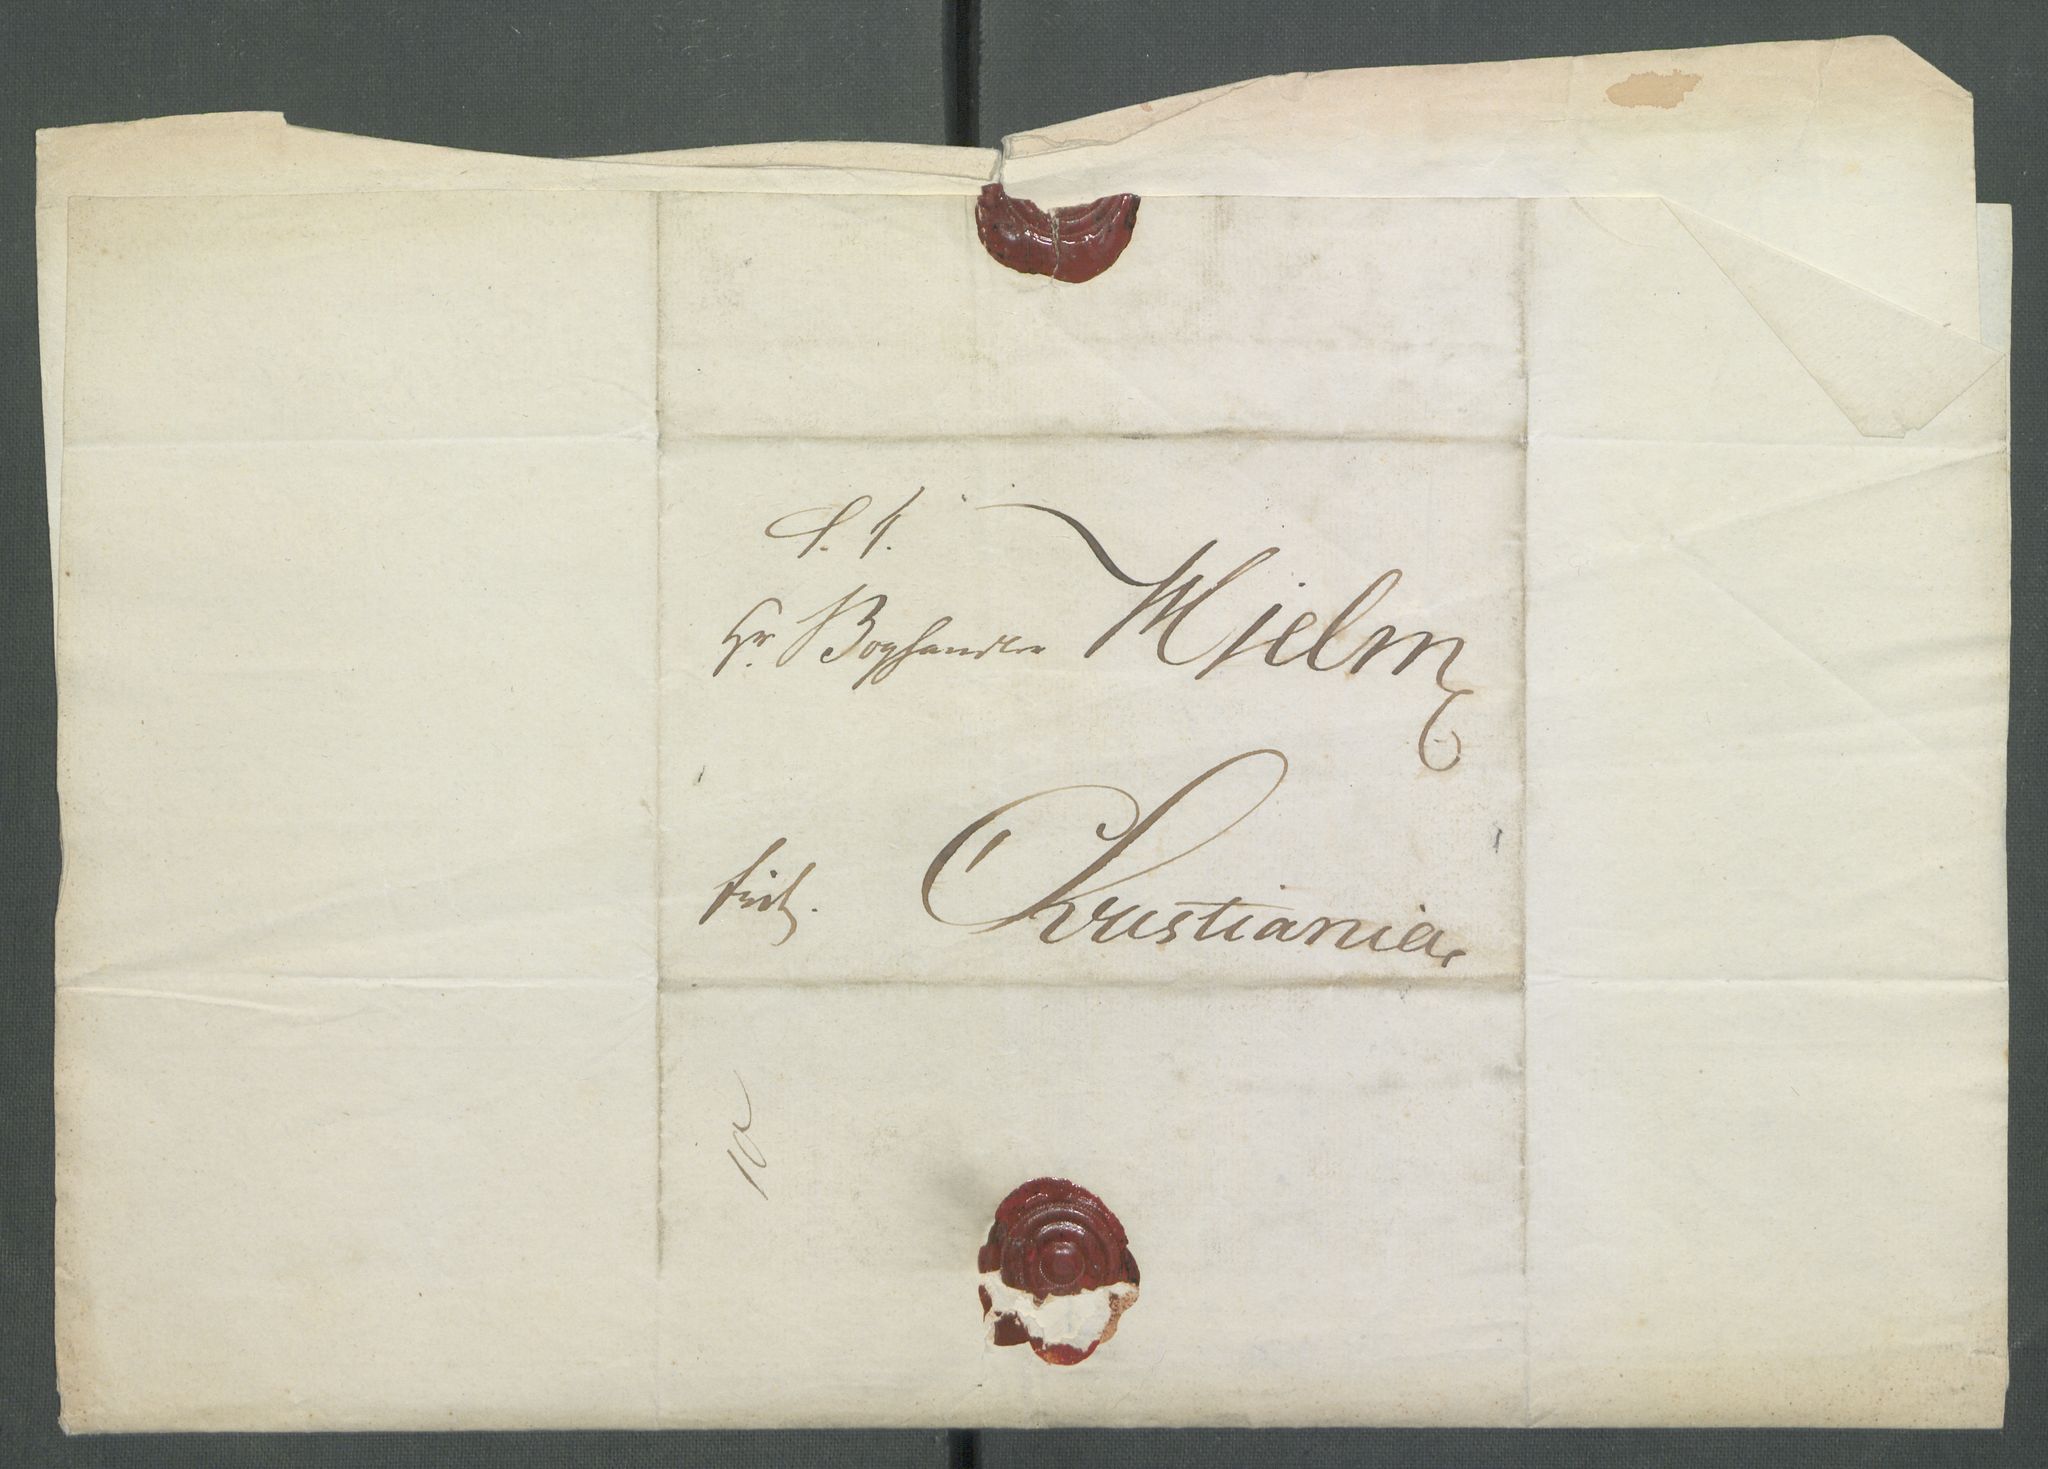 S. T.
Hr. Boghandler Hjelm
Christiania.
10